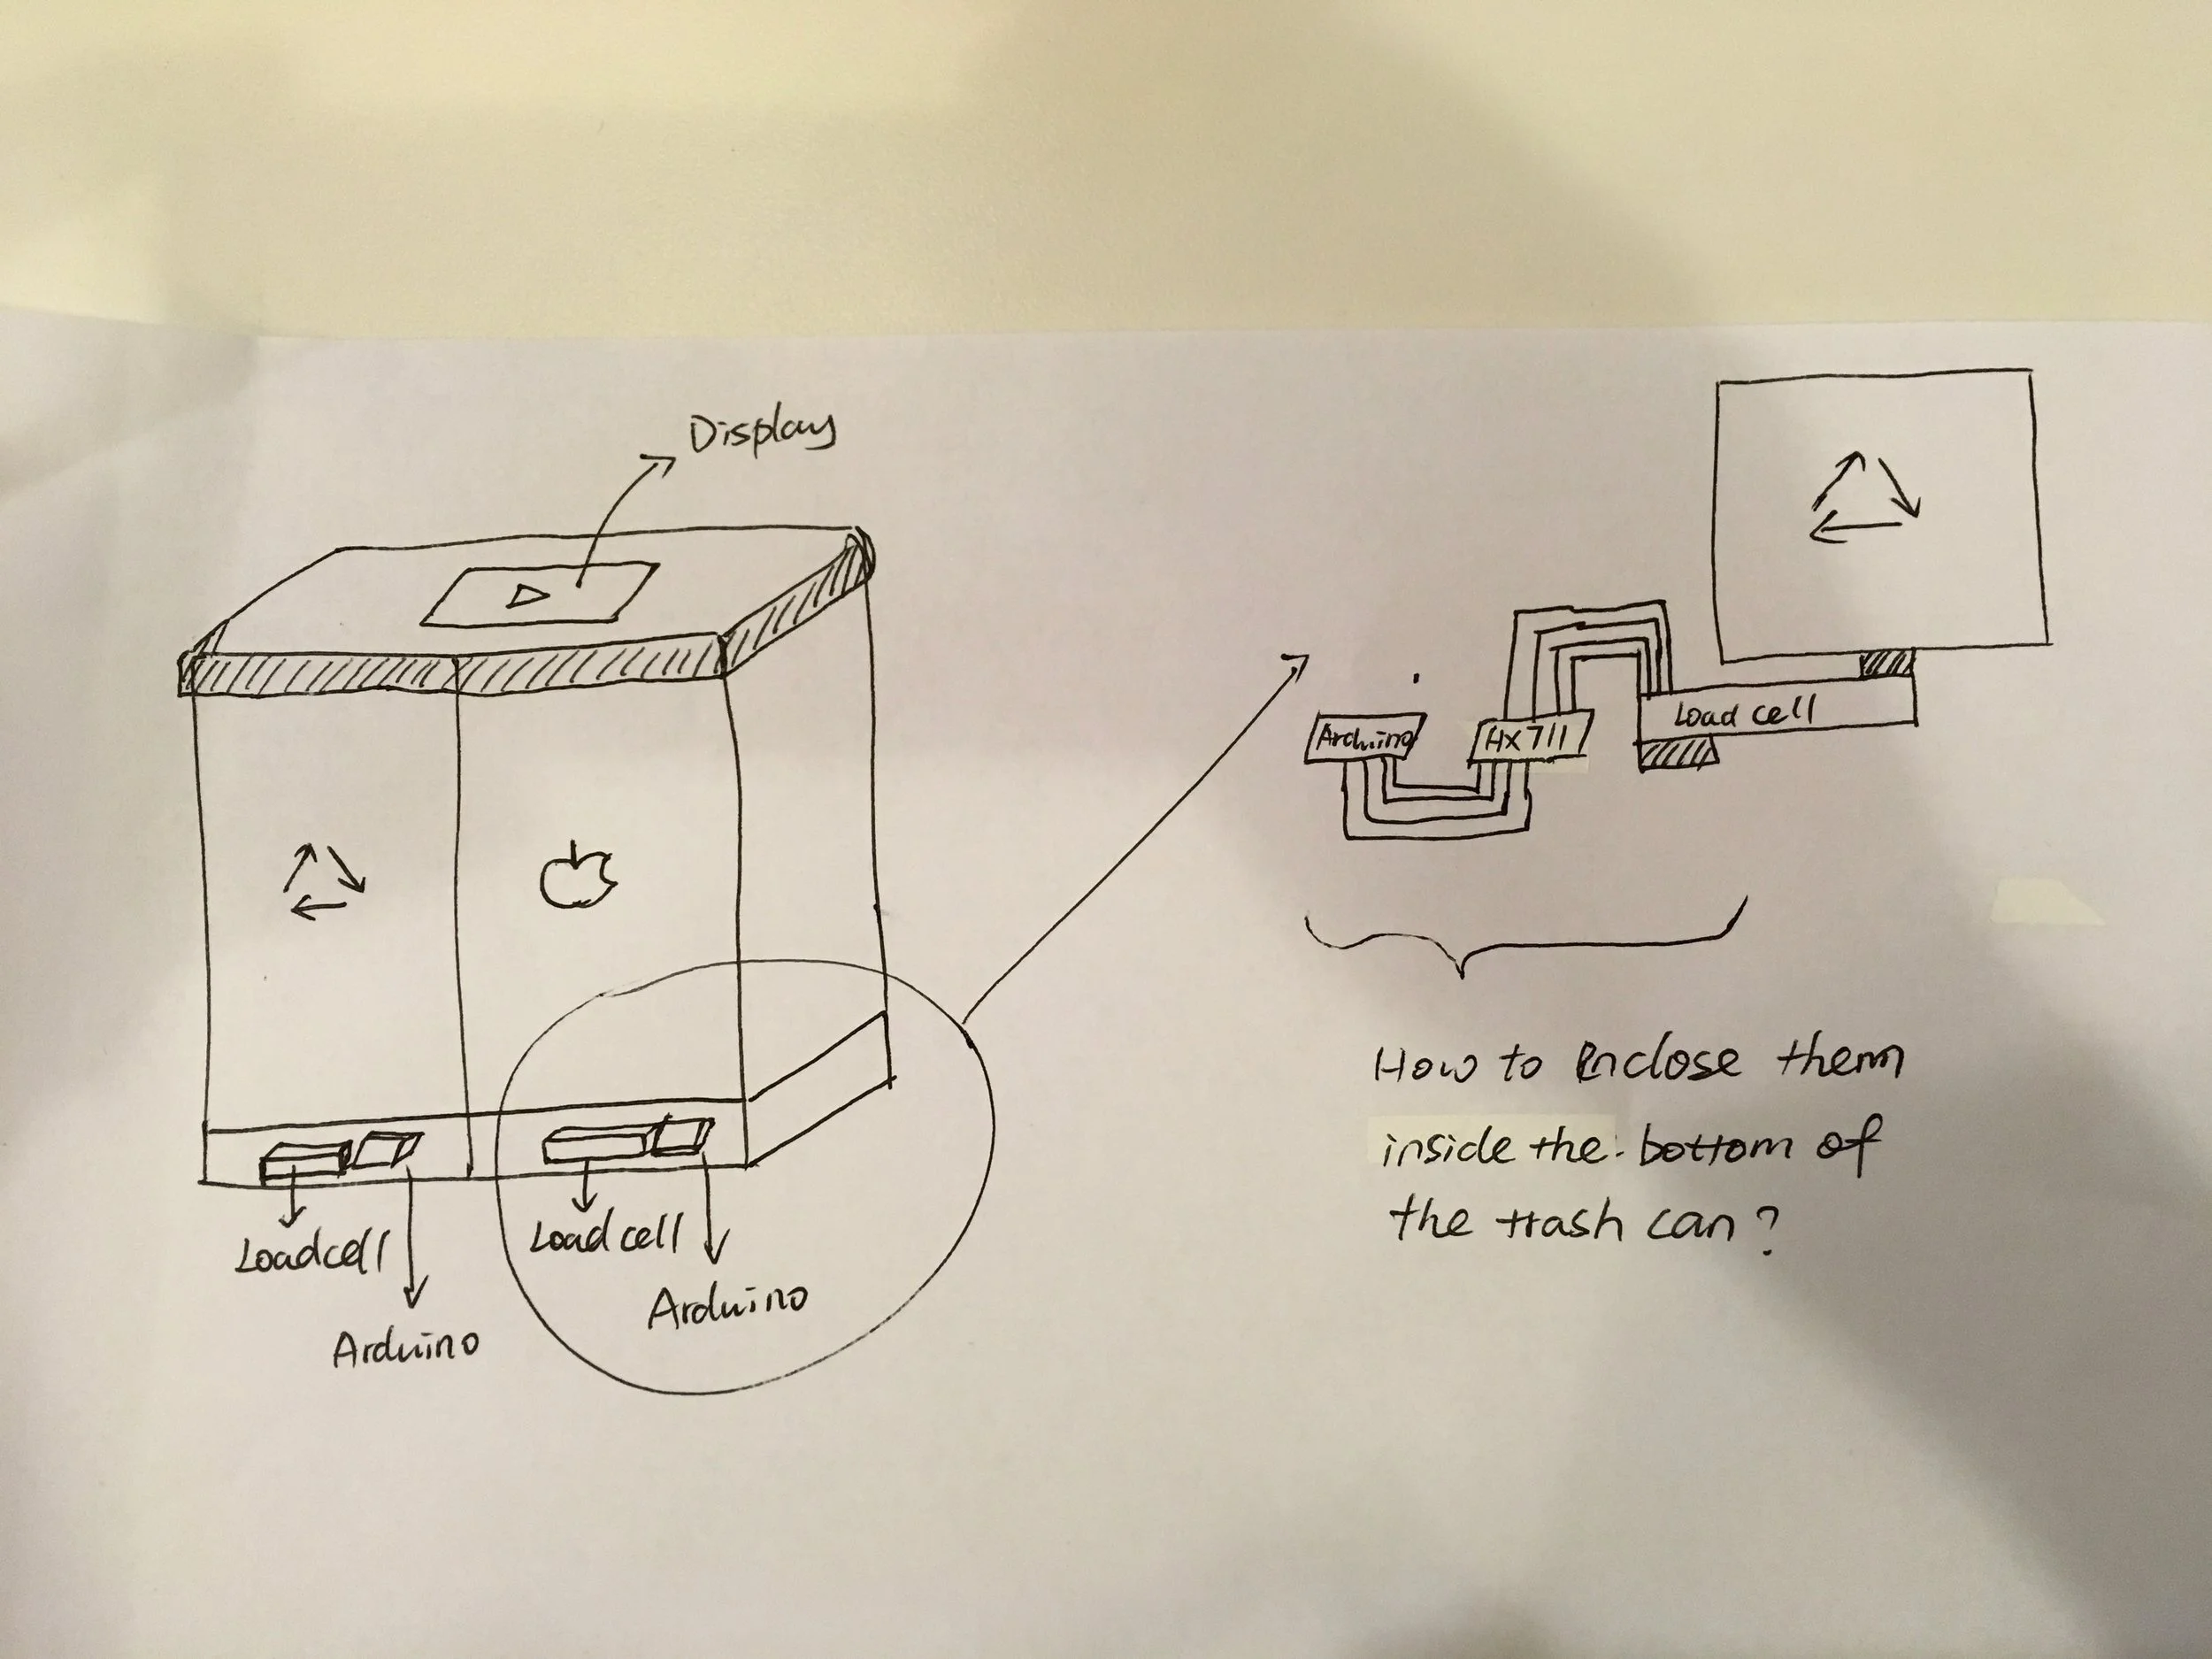 Display
Loadcell
Arduino
Load cell
Arduino
Arduino
HX711
Load cell
How to Enclose them
inside the bottom of
the trash can?